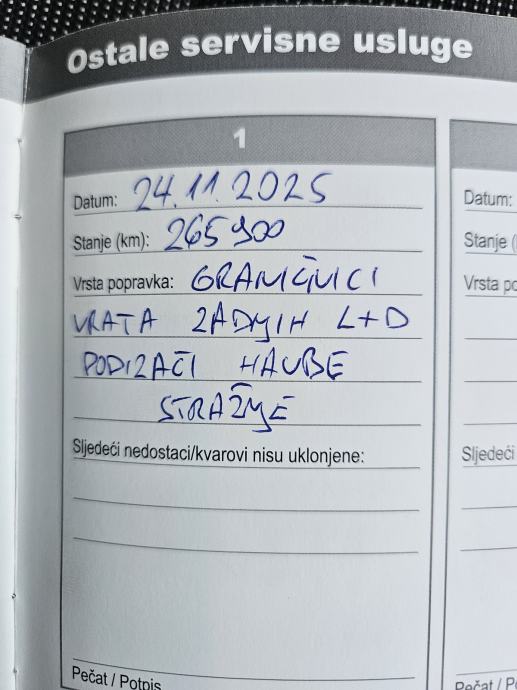 Ostale servisne usluge
1
Datum: 24.11.2025
Stanje (km): 265 900
Vrsta popravka: GRANIČNICI
VRATA ZADNJIH L+D
PODIZAČI HAUBE
STRAŽNJE
Sljedeći nedostaci/kvarovi nisu uklonjene:
Pečat / Potpis
Datum:
Stanje (
Vrsta po
Sljedeći
Pečat / P